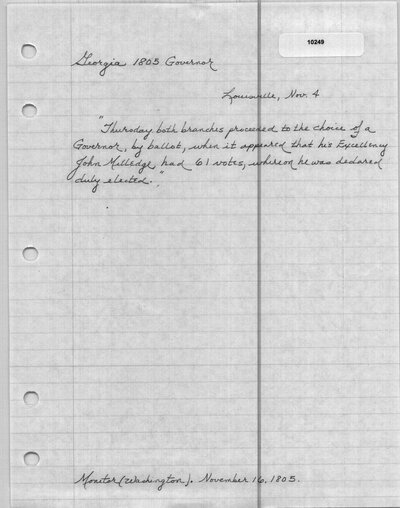 10249
Georgia 1805 Governor
Louisville, Nov. 4
"Thursday both branches proceeded to the choice of a
Governor, by ballot, when it appeared that his Excellency
John Milledge, had 61 votes, whereon he was declared
duly elected."
Monitor (Washington). November 16, 1805.